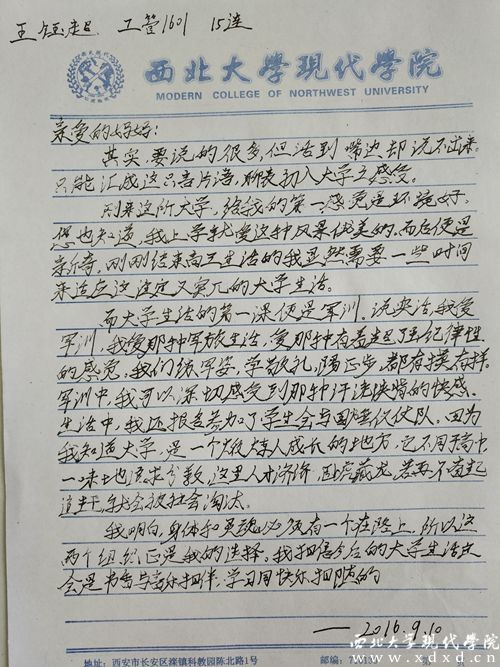 王钰超 工管1601 15连
西北大學現代學院
MODERN COLLEGE OF NORTHWEST UNIVERSITY
亲爱的妈妈:
其实要说的很多,但话到嘴边却说不出来
只能汇成这只言片语,聊表初入大学之感受。
刚来这所大学,给我的第一感觉是环境好,
您也知道,我上学就爱这种风景优美的,而后便是
新奇,刚刚结束高三生活的我显然需要一些时间
来适应这注定又寂冗的大学生活。
而大学生活的第一课便是军训,说实话,我爱
军训,我爱那种军旅生活,爱那种有着超强纪律性
的感觉,我们练军姿,学敬礼,踢正步,都有模有样。
军训中,我可以深切感受到那种汗流浃背的快感。
生活中,我还报名参加了学生会与国旗仪仗队。因为
我知道大学,是一个大人成长的地方,它不同于高中
一味地追求分数,这里人才济济,卧虎藏龙,若再不奋起
直追,就会被社会淘汰。
我明白,身体和灵魂必须有一个在路上,所以这
两个组织正是我的选择,我相信今后的大学生活定
会是书香与音乐相伴,学习同快乐相随的
——2016.9.10
地址:西安市长安区滦镇科教园陈北路1号 邮编:
西北大学现代学院
www.xdxd.cn